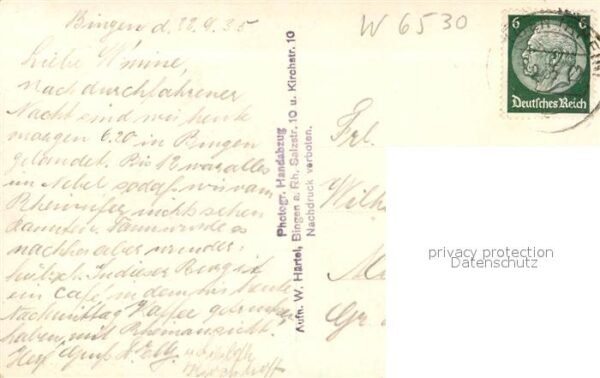 Bingen d. 22.9.35
W 6530
6 6
Deutsches Reich
Liebe W'mine,
nach durchfahrener
Nacht sind wir heute
morgen 6.20 in Bingen
gelandet. Bis 12 war alles
im Nebel sodaß wir vom
Rheinufer nichts sehen
konnten. Dann wurde es
nachher aber wunder-
In dieser Burg ist
ein Café, in dem wir heute
Nachmittag Kaffee getrunken
haben, mit Rheinansicht!
Herzl. Gruß
Photogr. Handabzug
Aufn. W. Härtel, Bingen a. Rh. Salzstr. 10 u. Kirchstr. 10
Nachdruck verboten.
Frl.
Wilh
Gr.
privacy protection
Datenschutz